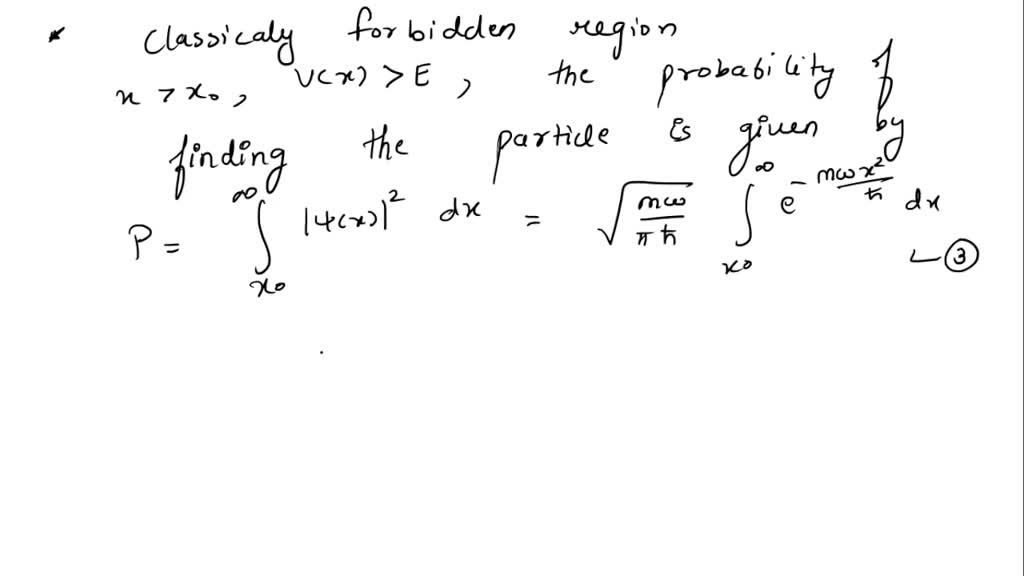 * Classicaly forbidden region
x > x₀, V(x) > E, the probability of
finding the particle is given by
P = ∫_{x₀}^{∞} |ψ(x)|² dx = √(mω/πħ) ∫_{x₀}^{∞} e^{-mωx²/ħ} dx
↳ ③